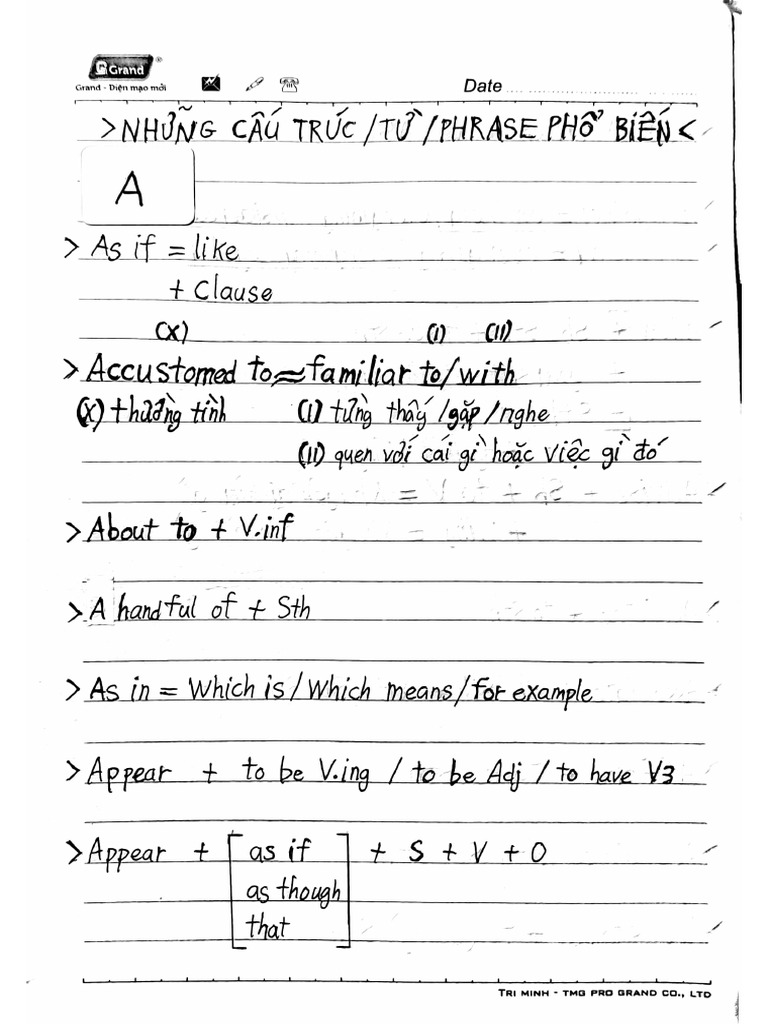 Grand
Grand - Diện mạo mới
Date
>NHỮNG CẤU TRÚC /TỪ /PHRASE PHỔ BIẾN<
A
> As if = like
+ Clause
(X) (I) (II)
> Accustomed to ≈ familiar to/with
(X) thường tình (I) từng thấy /gặp /nghe
(II) quen với cái gì hoặc việc gì đó
> About to + V.inf
> A handful of + Sth
> As in = Which is / Which means / for example
> Appear + to be V.ing / to be Adj / to have V3
> Appear + [ as if ] + S + V + O
as though
that
TRI MINH - TMG PRO GRAND CO., LTD